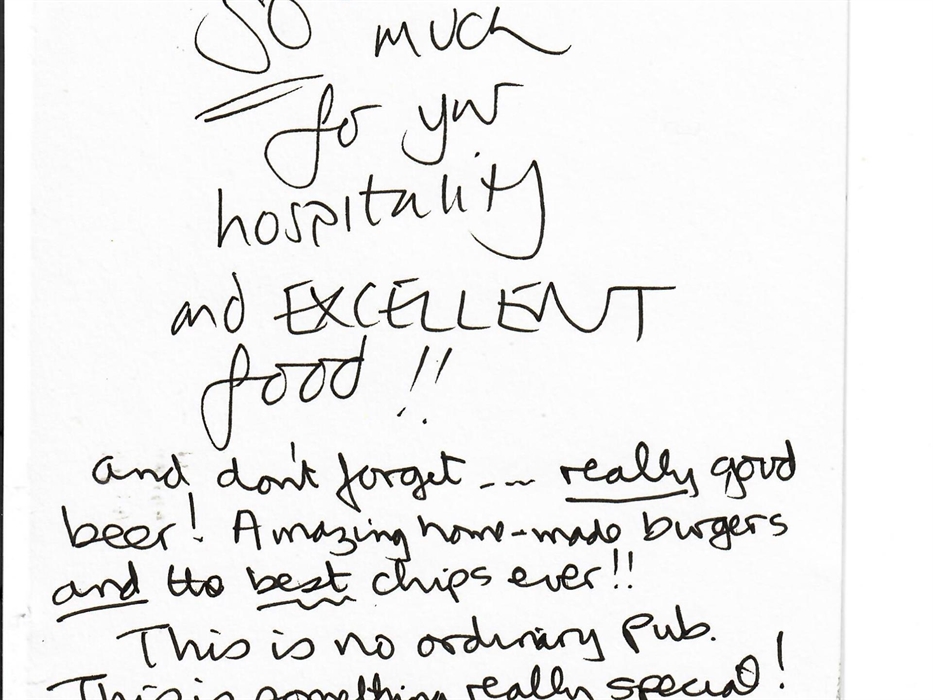 So much
for your
hospitality
and EXCELLENT
food!!
and don't forget --- really good
beer! Amazing home-made burgers
and the best chips ever!!
This is no ordinary pub.
This is something really special!